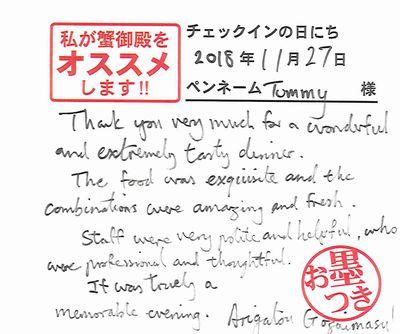 私が蟹御殿を
オススメ
します!!
チェックインの日にち
2018年11月27日
ペンネーム Tommy 様
Thank you very much for a wonderful
and extremely tasty dinner.
The food was exquisite and the
combinations were amazing and fresh.
Staff were very polite and helpful, who
were professional and thoughtful.
It was truely a
memorable evening. Arigatou Gozaimasu!
お墨つき